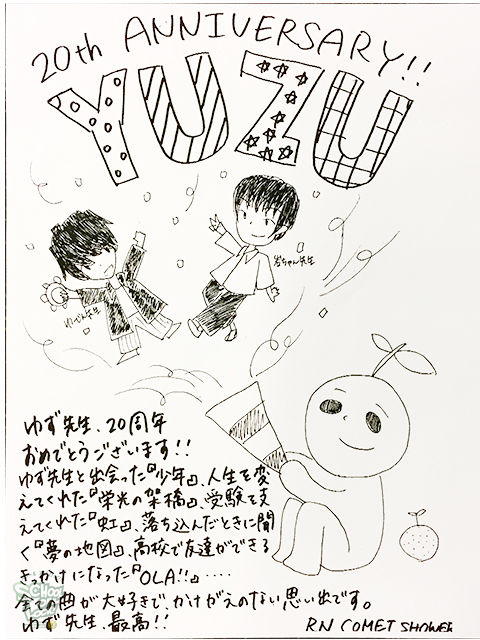 20th ANNIVERSARY!!
YUZU
岩ちゃん先生
ゆーじん先生
ゆず先生、20周年
おめでとうございます!!
ゆず先生と出会った『少年』、人生を変
えてくれた『栄光の架橋』、受験を支
えてくれた『虹』、落ち込んだときに聞
く『夢の地図』、高校で友達ができる
きっかけになった『OLA!!』‥‥
全ての曲が大好きで、かけがえのない思い出です。
ゆず先生、最高!!
RN COMET SHOWER